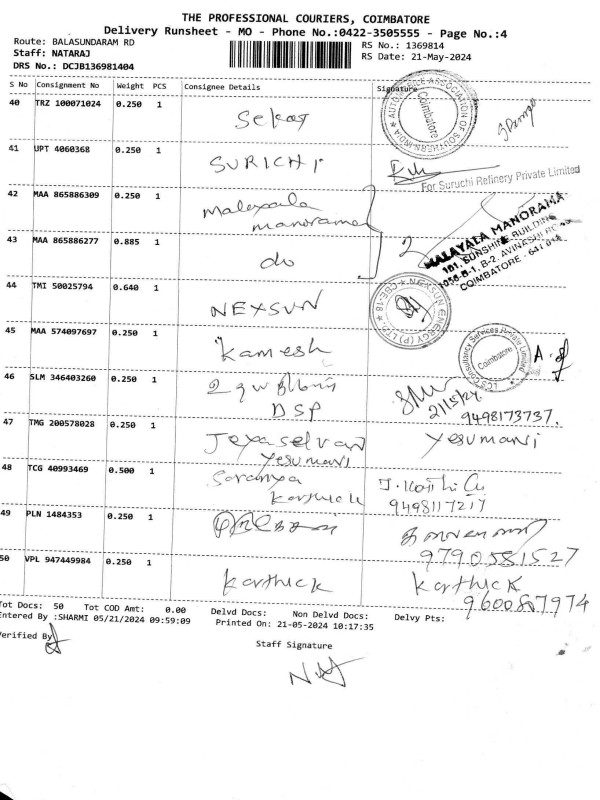 THE PROFESSIONAL COURIERS, COIMBATORE
Delivery Runsheet - MO - Phone No.:0422-3505555 - Page No.:4
Route: BALASUNDARAM RD
RS No.: 1369814
Staff: NATARAJ
RS Date: 21-May-2024
DRS No.: DCJB136981404
S No Consignment No Weight PCS Consignee Details Signature
40 TRZ 100071024 0.250 1 Sekar
AUTOMOTIVE ASSOCIATION OF SOUTHERN INDIA
Coimbatore
41 UPT 4060368 0.250 1 SURICHI
For Suruchi Refinery Private Limited
42 MAA 865886309 0.250 1 Malayala
manorama
MALAYALA MANORAMA
43 MAA 865886277 0.885 1 do 2
COIMBATORE - 641 018
44 TMI 50025794 0.640 1 NEXSUN
NEXSUN ENERGY (P) LTD CBE-18
45 MAA 574097697 0.250 1 Kamesh
Consultancy Services Private Limited
Coimbatore
46 SLM 346403260 0.250 1
DSP
21/5/24
9498173737.
47 TMG 200578028 0.250 1 Jeyaselvan
Yesumani
Yesumani
48 TCG 40993469 0.500 1 Saranya
Karthick
9498117217
49 PLN 1484353 0.250 1
9790581527
50 VPL 947449984 0.250 1 Karthick Karthick
9600887974
Tot Docs: 50 Tot COD Amt: 0.00 Delvd Docs: Non Delvd Docs: Delvy Pts:
Entered By :SHARMI 05/21/2024 09:59:09 Printed On: 21-05-2024 10:17:35
Verified By
Staff Signature